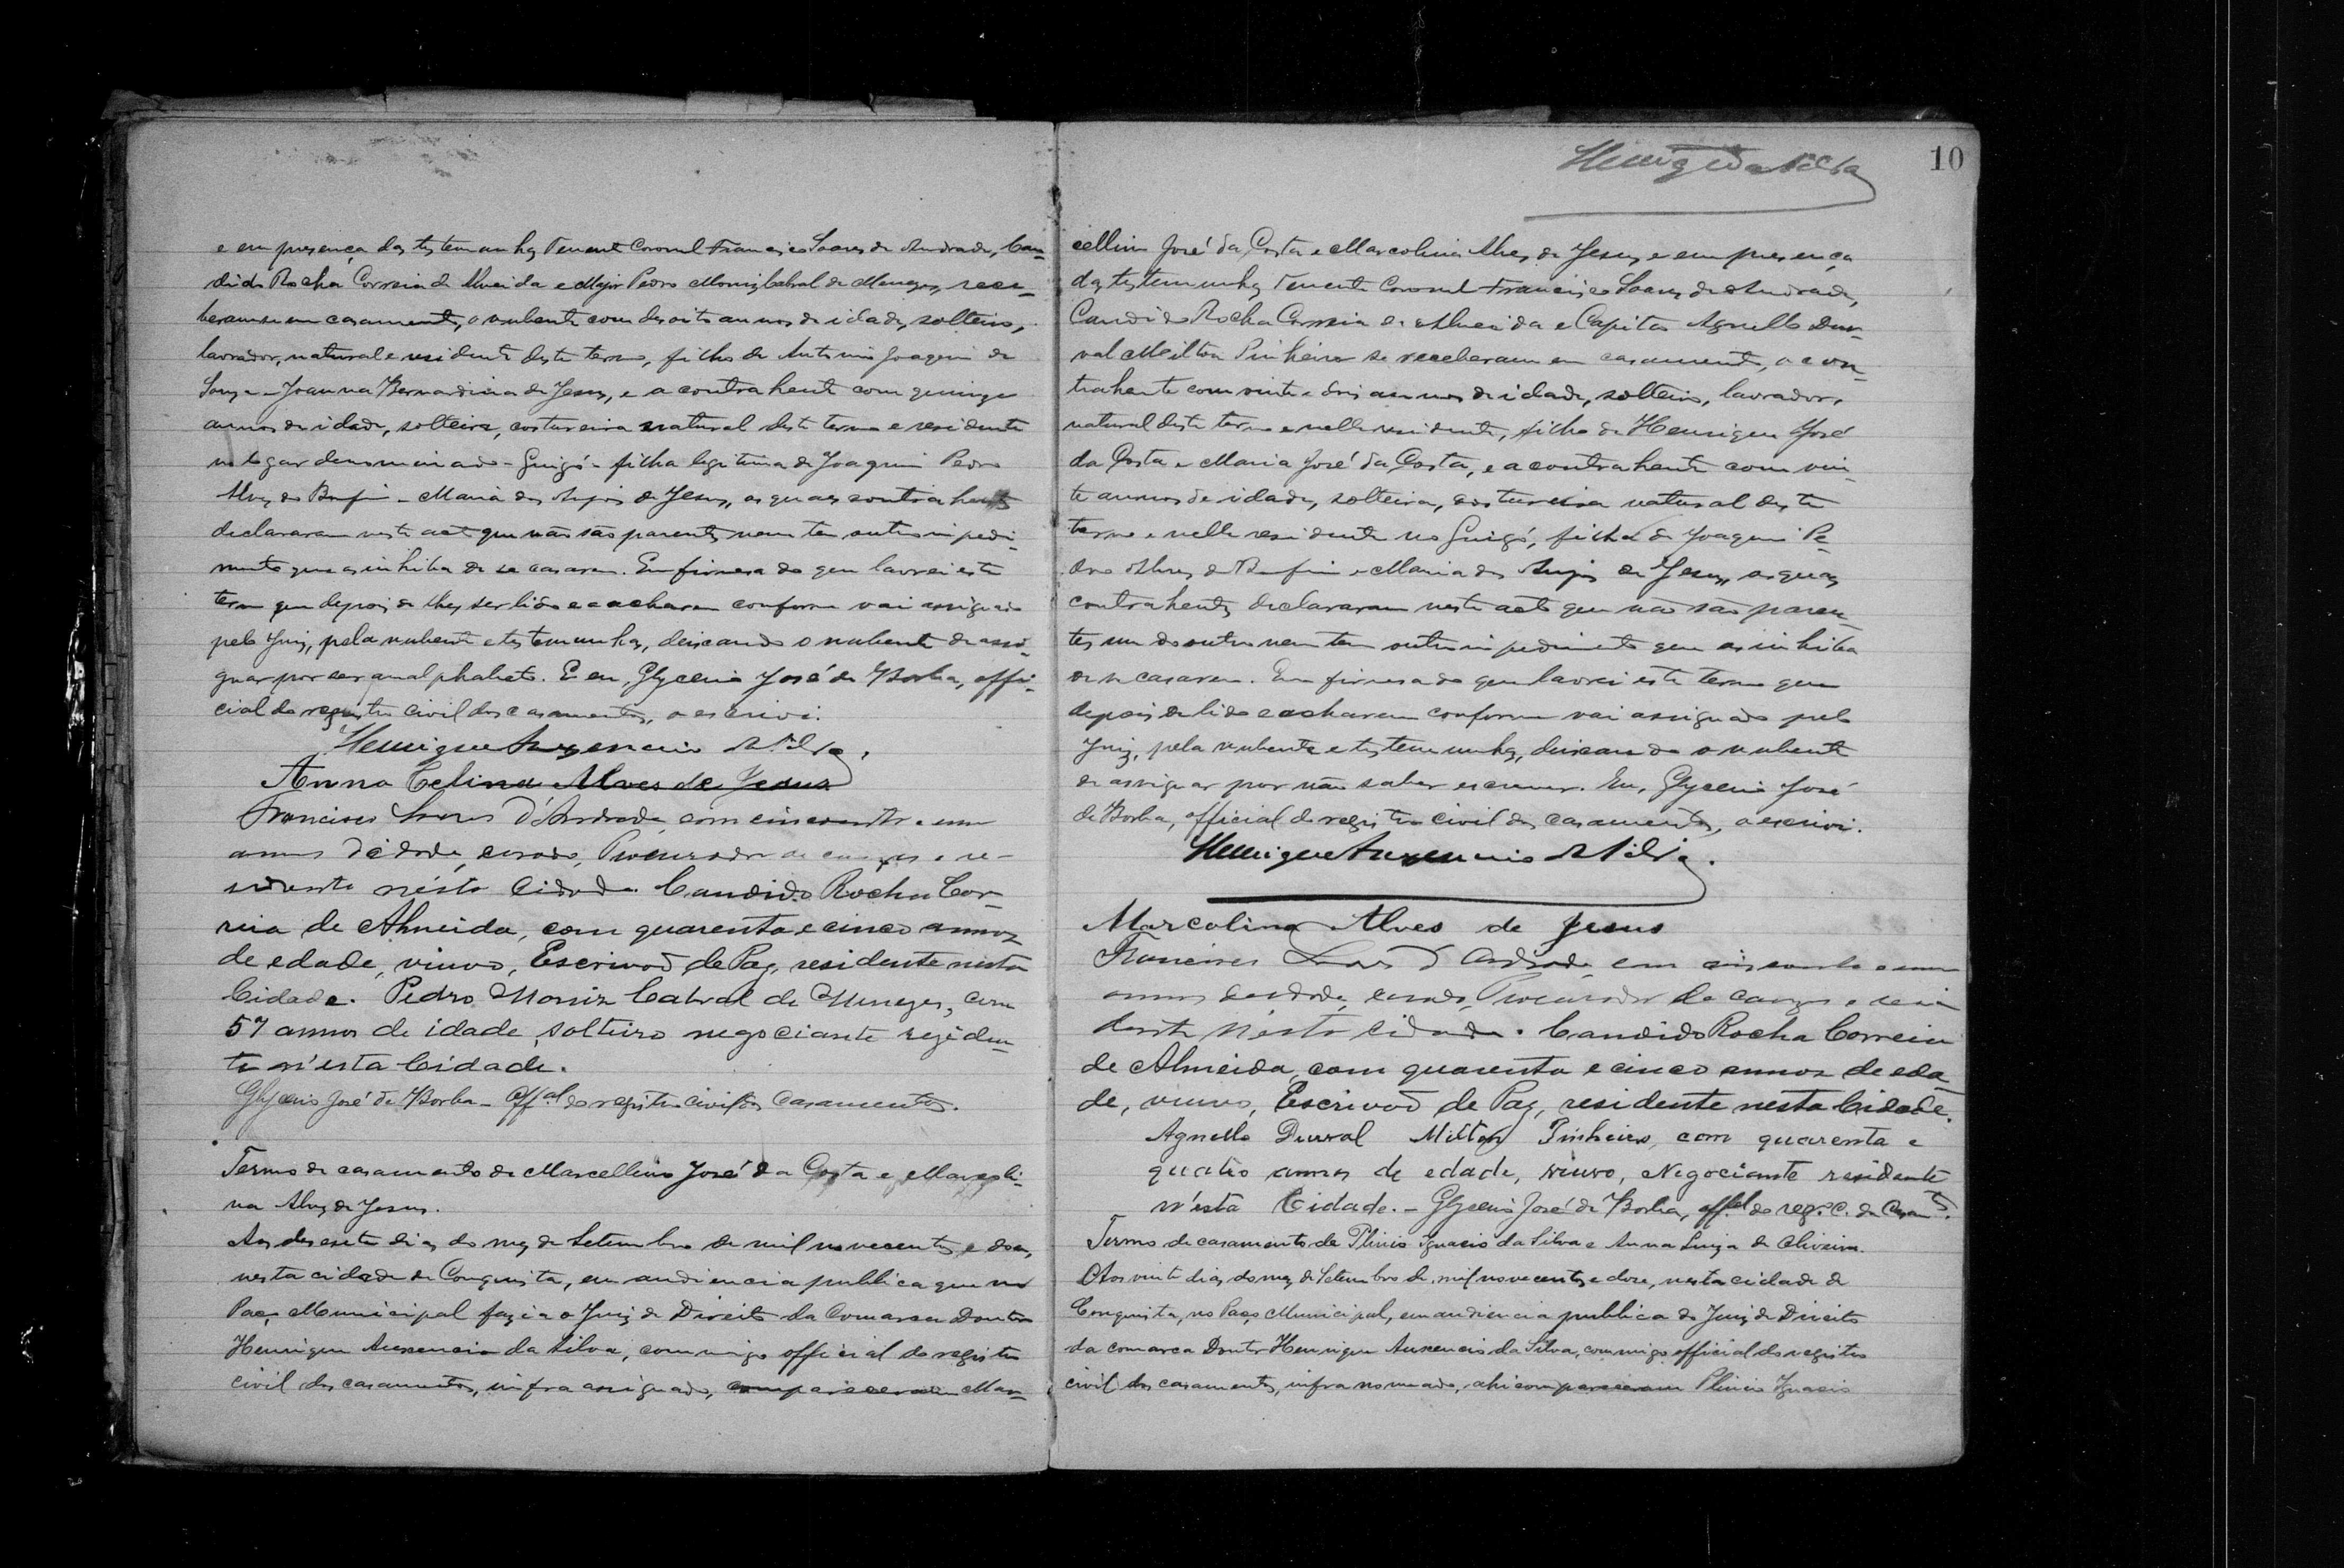 e em presença das testemunhas Tenente Coronel Francisco Soares de Andrade, Can-
dido Rocha Correia de Almeida e Major Pedro Moniz Cabral de Menezes, rece-
beram-se em casamento, o nubente com desoito annos de idade, solteiro,
lavrador, natural e residente deste termo, filho de Antonio Joaquim de
Souza e Joanna Bernardina de Jesus, e a contrahente com quinze
annos de idade, solteira, costureira natural deste termo e residente
no logar denominado - Guigó - filha legitima de Joaquim Pedro
Alves do e Maria dos Anjos de Jesus, os quaes contrahentes
declararam neste acto que não são parentes nem tem outro impedi-
mento que os inhiba de se casarem. Em firmesa do que lavrei este
termo que depois de lhes ser lido e acharem conforme vai assignado
pelo Juiz, pela nubente e testemunhas, deixando o nubente de assi-
gnar por ser analphabeto. E eu, Glycerio José de Borba, offi-
cial do registro civil dos casamentos, o escrevi.
Henrique Auxencio da Silva.
Anna Celina Alves de Jesus
Francisco Soares d'Andrade, com cincoenta e um
annos d'edade, casado, Procurador de causas e re-
sidente nésta Cidade. Candido Rocha Cor-
reia de Almeida, com quarenta e cinco annos
de edade, viuvo, Escrivão de Paz, residente nesta
Cidade. Pedro Moniz Cabral de Menezes, com
57 annos de idade, solteiro negociante reziden-
te n'esta Cidade.
Glycerio José de Borba - Off.al do registro civil dos Casamentos.
Termo de casamento de Marcellino José da Costa e Marcoli-
na Alves de Jesus.
Aos desesete dias do mez de Setembro de mil novecentos e dose,
nesta cidade de Conquista, em audiencia publica que no
Paço Municipal fazia o Juiz de Direito da Comarca Doutor
Henrique Auxencio da Silva, commigo official do registro
civil dos casamentos, infra assignado, compareceram Mar-
Henriq da Silva
10
cellino José da Costa e Marcolina Alves de Jesus e em presença
das testemunhas Tenente Coronel Francisco Soares de Andrade,
Candido Rocha Correia de Almeida e Capitão Agnello Dur-
val Milton Pinheiro se receberam em casamento, o con-
trahente com vinte e dois annos de idade, solteiro, lavrador,
natural deste termo e nelle residente, filho de Henrique José
da Costa e Maria José da Costa, e a contrahente com vin-
te annos de idade, solteira, costureira natural deste
termo e nelle residente no Guigó, filha de Joaquim Pe-
dro Alves do e Maria dos Anjos de Jesus, os quaes
contrahentes declararam neste acto que não são paren-
tes um do outro nem tem outro impedimento que os inhiba
de se casarem. Em firmesa do que lavrei este termo que
depois de lido e acharem conforme vai assignado pelo
Juiz, pela nubente e testemunhas, deixando o nubente
de assignar por não saber escrever. Eu, Glycerio José
de Borba, official do registro civil dos casamentos, o escrevi.
Henrique Auxencio da Silva.
Marcolina Alves de Jesus
Francisco Soares d'Andrade, com cincoenta e um
annos d'edade, casado, Procurador de causas e resi
dente nésta cidade. Candido Rocha Correia
de Almeida, com quarenta e cinco annos de eda
de, viuvo, Escrivão de Paz, residente nesta Cidade.
Agnello Durval Milton Pinheiro, com quarenta e
quatro annos de edade, viuvo, Negociante residente
n'ésta Cidade. - Glycerio José de Borba, off.al do reg.º C. de Casam.tos.
Termo de casamento de Plinio Ignacio da Silva e Anna Luiza de Oliveira.
Aos vinte dias do mez de Setembro de mil novecentos e doze, nesta cidade de
Conquista, no Paço Municipal, em audiencia publica do Juiz de Direito
da comarca Doutor Henrique Auxencio da Silva, commigo official do registro
civil dos casamentos, infra nomeado, ahi compareceram Plinio Ignacio